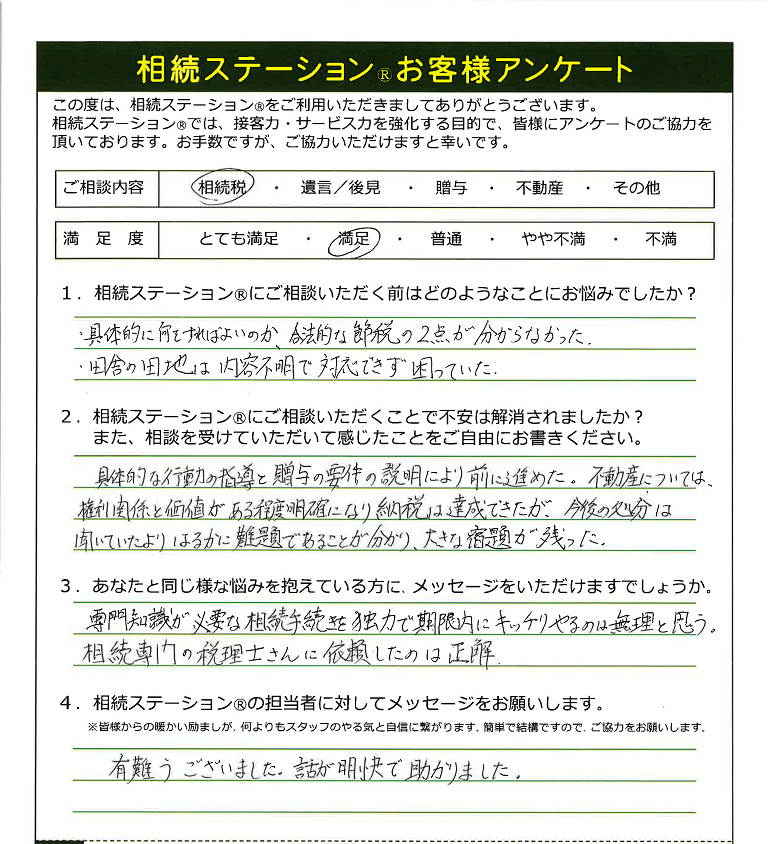 相続ステーション®お客様アンケート
この度は、相続ステーション®をご利用いただきましてありがとうございます。
相続ステーション®では、接客力・サービス力を強化する目的で、皆様にアンケートのご協力を
頂いております。お手数ですが、ご協力いただけますと幸いです。
ご相談内容 相続税 ・ 遺言／後見 ・ 贈与 ・ 不動産 ・ その他
満足度 とても満足 ・ 満足 ・ 普通 ・ やや不満 ・ 不満
１．相続ステーション®にご相談いただく前はどのようなことにお悩みでしたか？
・具体的に何をすればよいのか、合法的な節税の2点が分からなかった.
・田舎の田地は内容不明で対応できず困っていた.
２．相続ステーション®にご相談いただくことで不安は解消されましたか？
また、相談を受けていただいて感じたことをご自由にお書きください。
具体的な行動の指導と贈与の要件の説明により前に進めた。不動産については、
権利関係と価値がある程度明確になり納税は達成できたが、今後の処分は
聞いていたよりはるかに難題であることが分かり、大きな宿題が残った.
３．あなたと同じ様な悩みを抱えている方に、メッセージをいただけますでしょうか。
専門知識が必要な相続手続きを独力で期限内にキッチリやるのは無理と思う。
相続専門の税理士さんに依頼したのは正解.
４．相続ステーション®の担当者に対してメッセージをお願いします。
※皆様からの暖かい励ましが、何よりもスタッフのやる気と自信に繋がります。簡単で結構ですので、ご協力をお願いします。
有難うございました。話が明快で助かりました。